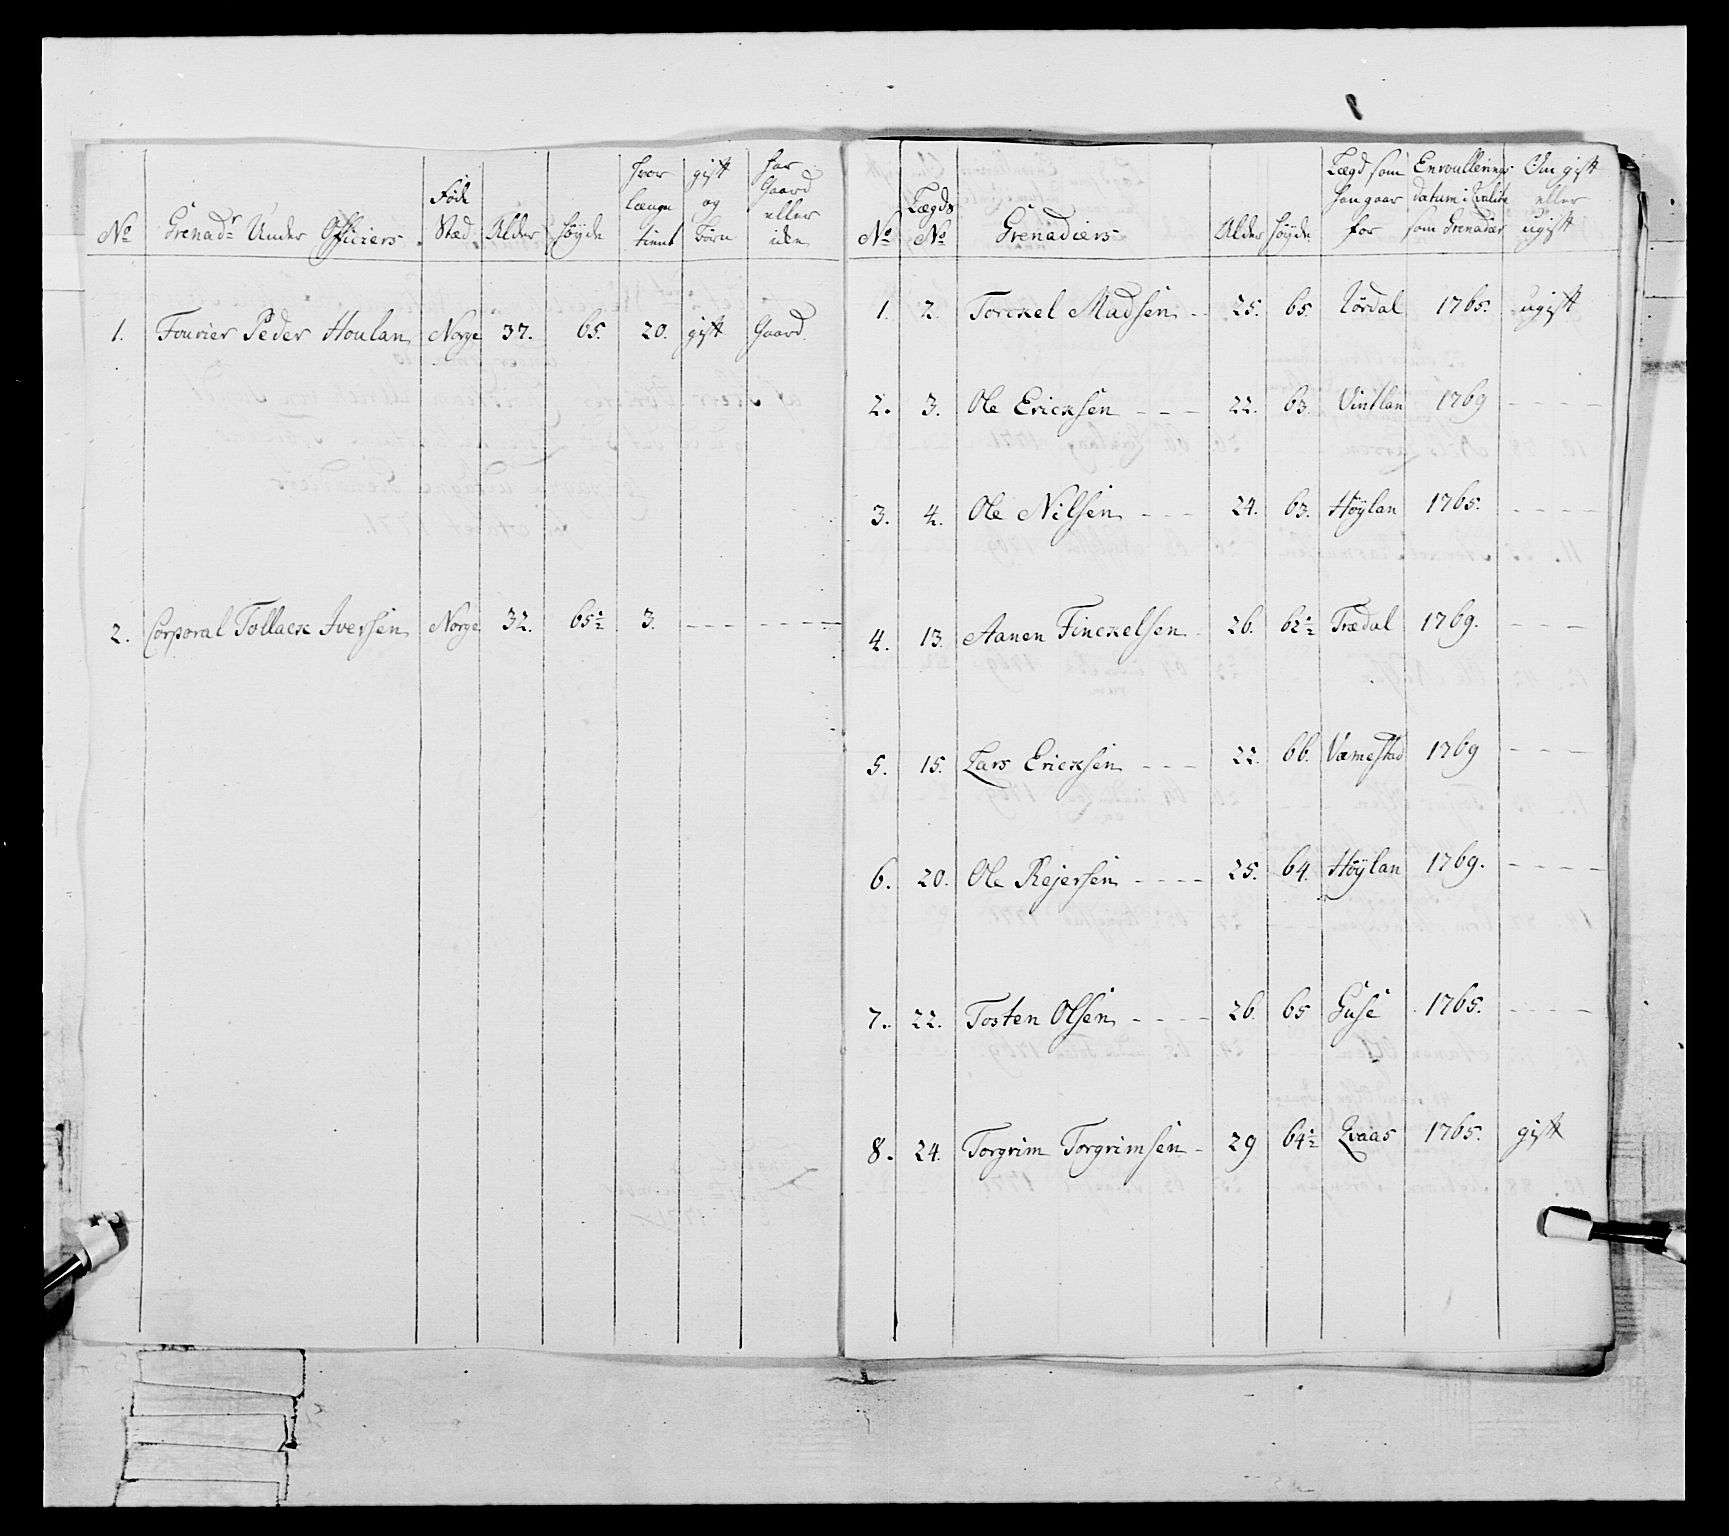 No | Grenadr Under Officiers | Føde Stæd | Alder | Høyde | hvor længe tient | gift og børn | har Gaard eller iden
1. Fourier Peder Houlan Norge 37. 65. 20. gift Gaard.
2. Corporal Tollack Iversen Norge 32. 65½ 3. - - - - - - -
No | Lægds No | Grenadiers | Alder | Høyde | Lægd som han gaar for | Enroullerings datum i Qvalite som Grenadær | Om gift eller ugift
1. 2. Torckel Madsen - - 25. 65. Lørdal 1765. ugift
2. 3. Ole Ericksen - - - 22. 63. Vintlan 1769 - - - -
3. 4. Ole Nilsen - - - 24. 63. Høÿlan 1765. - - - -
4. 13. Aanen Finckelsen 26. 62½ Trædal 1769. - - -
5. 15. Lars Ericksen - - - 22. 66. Væmestad 1769 - - -
6. 20. Ole Rejersen - - - - 25. 64. Høÿlan 1769. - - - -
7. 22. Tosten Olsen - - - - 26. 65 Guse 1765. - - - -
8. 24. Torgrim Torgrimsen - 29 64½ Qvaas 1765. gift